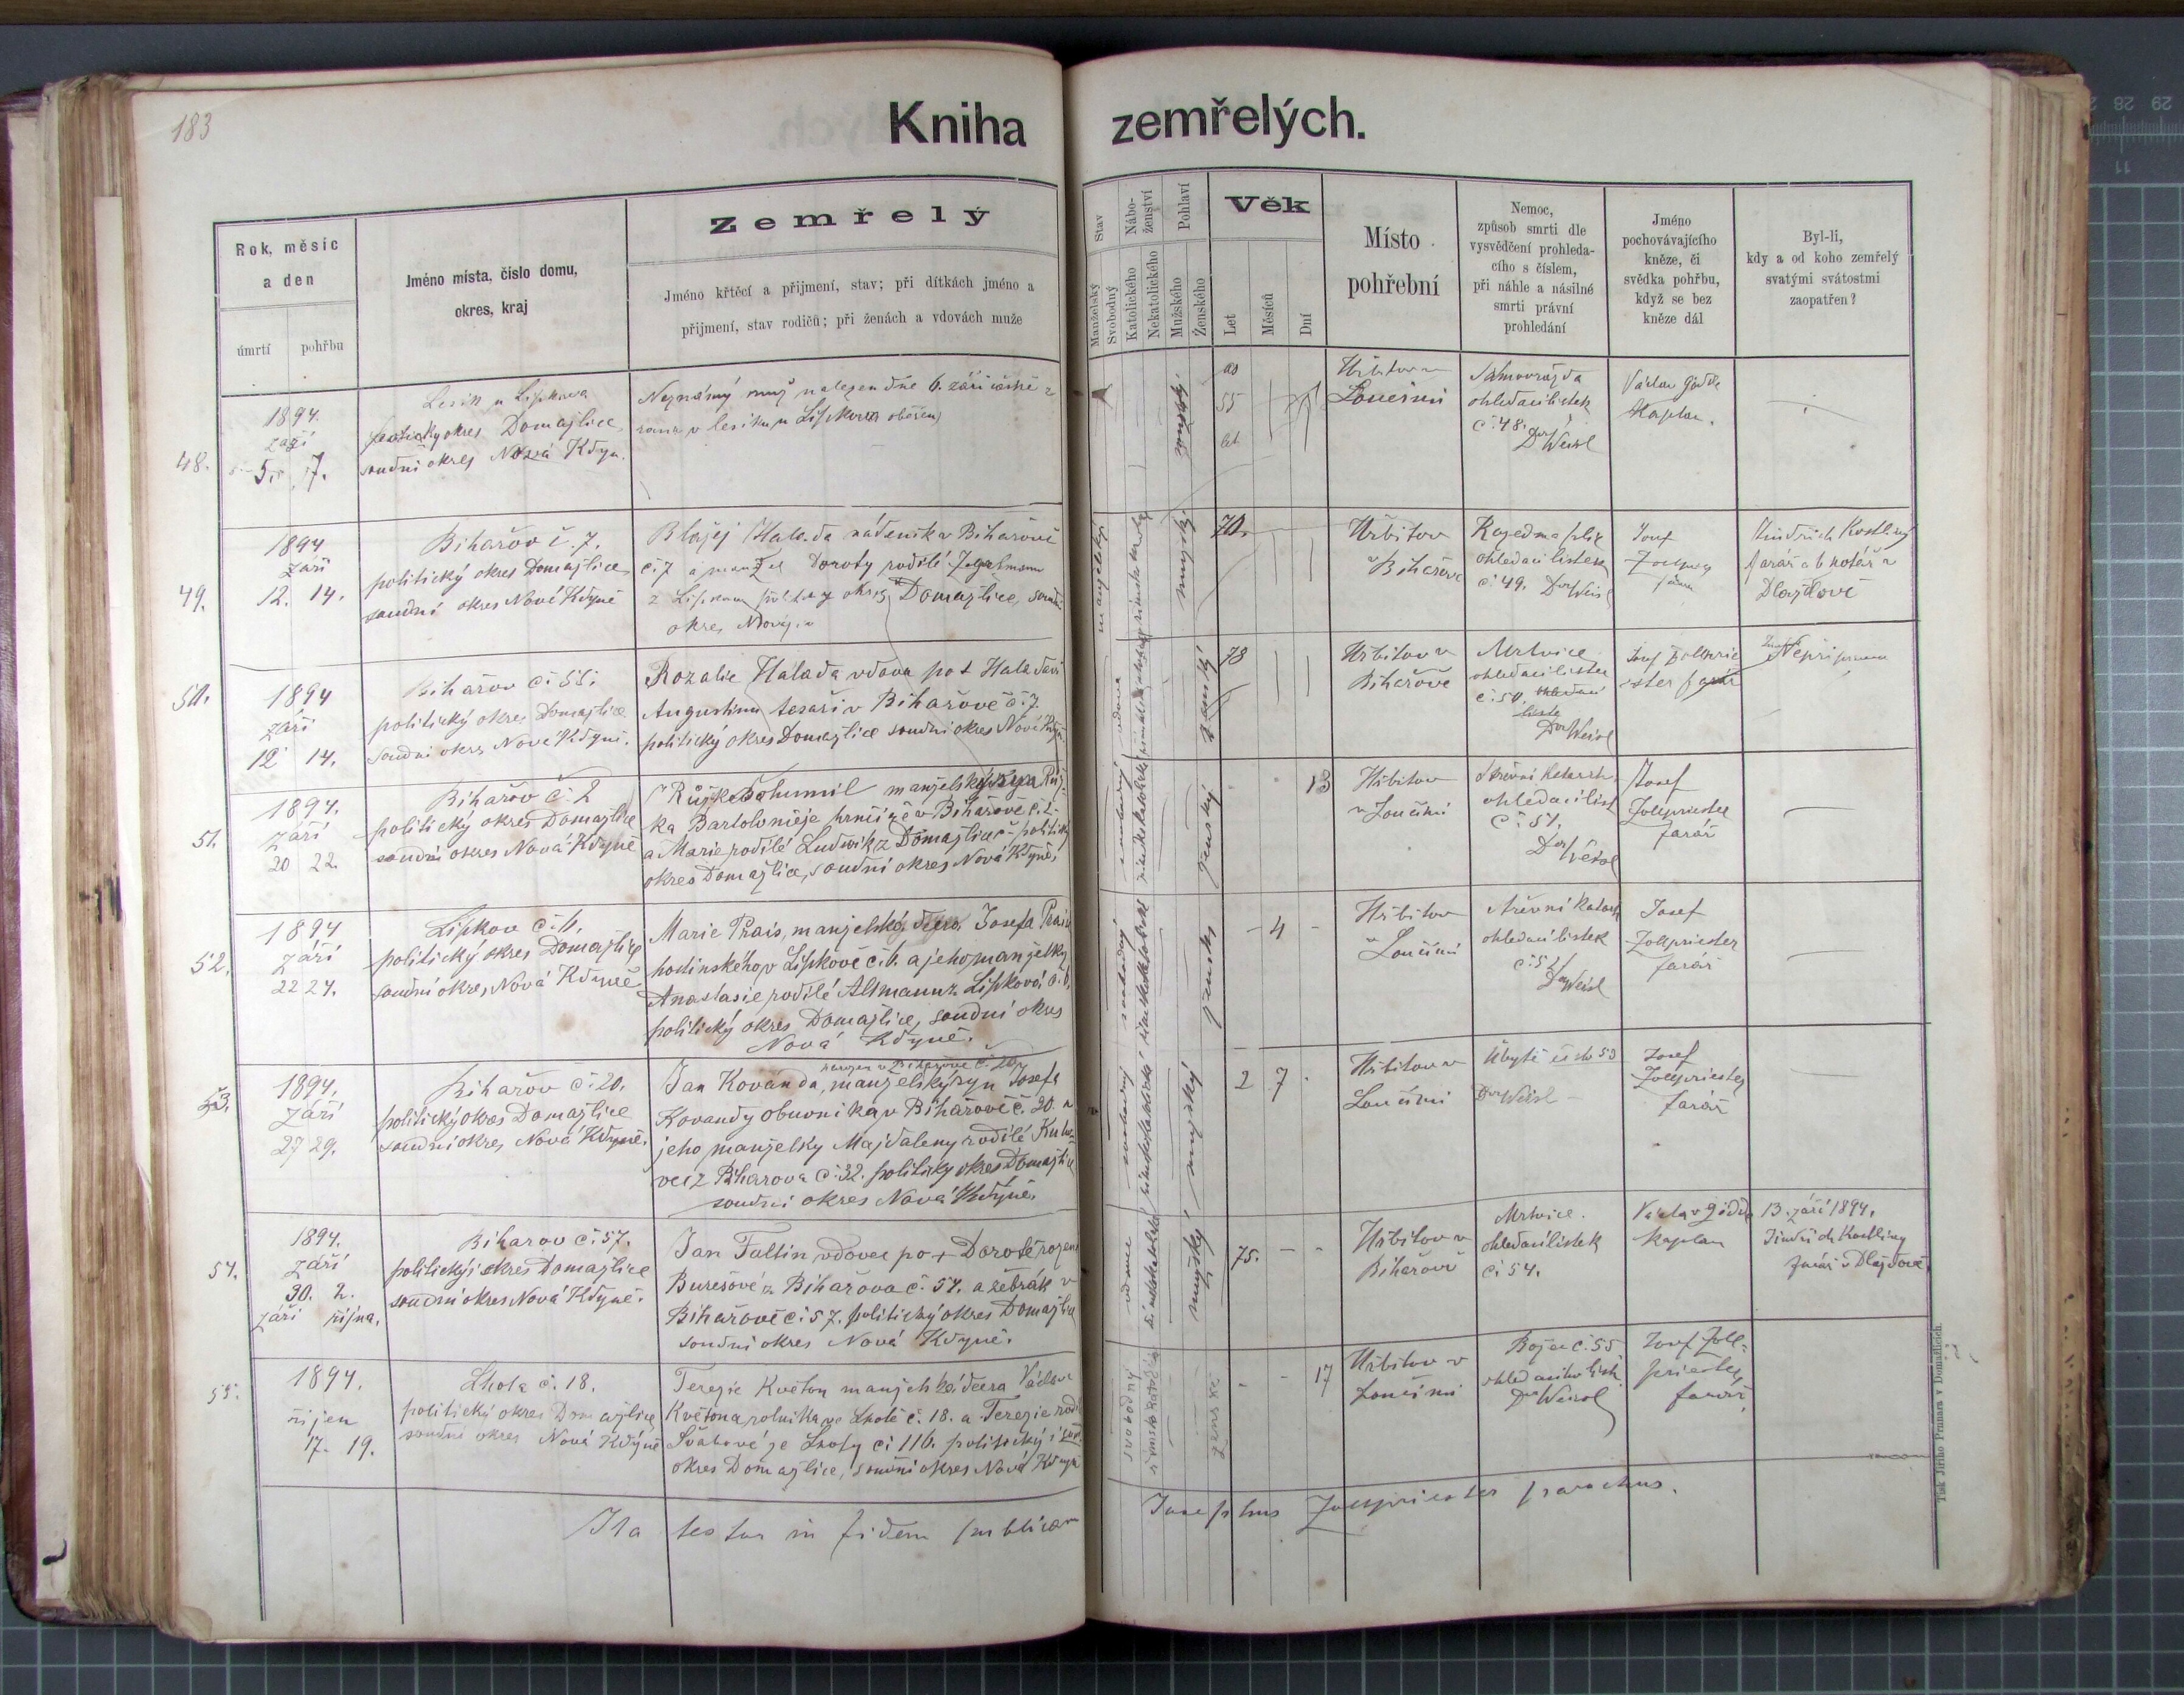 183
Kniha zemřelých.
Rok, měsíc
a den
úmrtí
pohřbu
Jméno místa, číslo domu,
okres, kraj
Zemřelý
Jméno křtěcí a přijmení, stav; při dítkách jméno a
přijmení, stav rodičů; při ženách a vdovách muže
Stav
Manželský
Svobodný
Nábo-
ženství
Katolického
Nekatolického
Pohlaví
Mužského
Ženského
Věk
Let
Měsíců
Dní
Místo
pohřební
Nemoc,
způsob smrti dle
vysvědčení prohleda-
cího s číslem,
při náhle a násilné
smrti právní
prohledání
Jméno
pochovávajícího
kněze, či
svědka pohřbu,
když se bez
kněze dál
Byl-li,
kdy a od koho zemřelý
svatými svátostmi
zaopatřen?
48.
1894.
září
5. 7.
Lesík u Lipkova
politický okres Domažlice
soudní okres Nová Kdyn.
Neznámý muž nalezen dne 6. září
ráno v lesíku u Lipkova oběšen
mužský
as
55
let
Hřbitov
Loučimi
Samovražda
ohledací listek
č. 48.
Dr Weisl
Václav
Kaplan.
49.
1894
září
12. 14.
Bihařov č. 7.
politický okres Domažlice
soudní okres Nové Kdyně
Blažej Halada nádeník v Bihařově
č. 7 a manžel Doroty rodilé
z Lipkova okres Domažlice, soudní
okres
manželský
mužský
70.
Hřbitov
v Bihařově
ohledací listek
č. 49. Dr Weisl
Josef
farář
Jindřich Kostliný
farář a b. notář v
Dlažďově
50.
1894
září
12 14.
Bihařov č. 55.
politický okres Domažlice
soudní okres Nové Kdyně.
Rozalie Halada vdova po †
Augustinu tesaři v Bihařově č. 7.
politický okres Domažlice soudní okres Nové Kdyn.
vdova
ženský
78
Hřbitov v
Bihařově
Mrtvice
ohledací listek
č. 50. ohledací
liste
Dr Weisl
Josef Zollprie
ster farář
51.
1894.
září
20 22.
Bihařov č. 2
politický okres Domažlice
soudní okres Nová Kdyně
Růžka Bohumil manželský syn Růž-
ka Bartoloměje v Bihařově č. 2
a Marie rodilé Ludwik z Domažlic politický
okres Domažlice, soudní okres Nová Kdyně.
svobodný
ženský
13
Hřbitov
v Loučimi
Střevní katarrh,
ohledací list
č. 51.
Dr Weisl
Josef
Zollpriester
farář
52.
1894
září
22 24.
Lipkov č. 6.
politický okres Domažlice
soudní okres, Nová Kdyně
Marie Prais, manželská dcera Josefa Prais
hodinského v Lipkově č. 6. a jeho manželky
Anastasie rodilé Altmann z Lipkova č. 6,
politický okres Domažlice, soudní okres
Nová Kdyně.
svobodný
ženský
4
Hřbitov
v Loučimi
Střevní katarh
ohledací listek
č. 52
Dr Weisl
Josef
Zollpriester
farář
53.
1894.
září
27 29.
Bihařov č. 20.
politický okres Domažlice
soudní okres, Nová Kdyně.
narozen v Bihařově č. 20
Jan Kovanda, manželský syn Josefa
Kovandy obuvníka v Bihařově č. 20. a
jeho manželky Majdaleny rodilé
z Bihařova č. 32. politický okres Domažlice
soudní okres Nová Kdyně.
svobodný
mužský
2 7
Hřbitov v
Loučimi
Úbytě číslo 53
Dr Weisl
Josef
Zollpriester
farář
54.
1894.
září
30. 2.
září října,
Bihařov č. 57.
politický okres Domažlice
soudní okres Nová Kdyně.
Jan Faltin vdovec po † Dorotě rozené
Burešové z Bihařova č. 57. a žebrák v
Bihařově č. 57. politický okres Domažlice
soudní okres Nová Kdyně.
vdovec
mužský
75.
Hřbitov v
Bihařově
Mrtvice.
ohledací listek
č. 54.
Václav
kaplan
13. září 1894.
Jindřich Kostliný
farář v Dlažďově
55.
1894.
říjen
17. 19.
Lhota č. 18.
politický okres Domažlice
soudní okres Nová Kdyně
Terezie Květon manželská dcera Václava
Květona rolníka ve Lhotě č. 18. a Terezie rod.
Švabové ze Lhoty č. 116. politický i soud.
okres Domažlice, soudní okres Nová Kdyně
svobodný
ženské
17
Hřbitov v
Loučimi
č. 55
Dr Weisl
Josef Zoll-
priester,
farář,
Ita testor in fidem publicam
Josephus Zollpriester parochus.
Tisk Jiřího Prunara v Domažlicích.